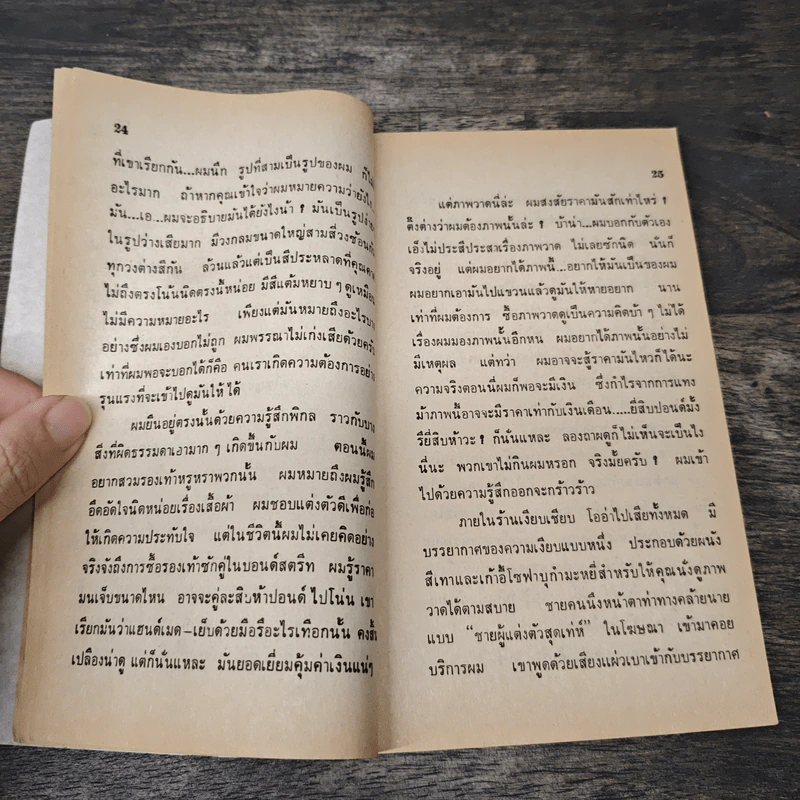 24
ที่เขาเรียกกัน...ผมนึก รูปที่สามเป็นรูปของผม ก็ไม่
อะไรมาก ถ้าหากคุณเข้าใจว่าผมหมายความว่ายังไง
มัน...เอ...ผมจะอธิบายมันได้ยังไงน้า ? มันเป็นรูปง่าย
ในรูปว่างเสียมาก มีวงกลมขนาดใหญ่สามสี่วงซ้อนกัน
ทุกวงต่างสีกัน ล้วนแล้วแต่เป็นสีประหลาดที่คุณคาด
ไม่ถึงตรงโน้นนิดตรงนี้หน่อย มีสีแต้มหยาบ ๆ ดูเหมือน
ไม่มีความหมายอะไร เพียงแต่มันหมายถึงอะไรบาง
อย่างซึ่งผมเองบอกไม่ถูก ผมพรรณาไม่เก่งเสียด้วยครับ
เท่าที่ผมพอจะบอกได้ก็คือ คนเราเกิดความต้องการอย่าง
รุนแรงที่จะเข้าไปดูมันให้ได้
ผมยืนอยู่ตรงนั้นด้วยความรู้สึกพิกล ราวกับบาง
สิ่งที่ผิดธรรมดาเอามาก ๆ เกิดขึ้นกับผม ตอนนี้ผม
อยากสวมรองเท้าหรูหราพวกนั้น ผมหมายถึงผมรู้สึก
อึดอัดใจนิดหน่อยเรื่องเสื้อผ้า ผมชอบแต่งตัวดีเพื่อก่อ
ให้เกิดความประทับใจ แต่ในชีวิตนี้ผมไม่เคยคิดอย่าง
จริงจังถึงการซื้อรองเท้าซักคู่ในบอนด์สตรีท ผมรู้ราคา
มนเจ็บขนาดไหน อาจจะคู่ละสิบห้าปอนด์ ไปโน่น เขา
เรียกมันว่าแฮนด์เมด-เย็บด้วยมือรึอะไรเทือกนั้น คงสิ้น
เปลืองน่าดู แต่ก็นั่นแหละ มันยอดเยี่ยมคุ้มค่าเงินแน่ๆ
25
แต่ภาพวาดนี่ล่ะ ผมสงสัยราคามันสักเท่าไหร่ ?
ติ๊งต่างว่าผมต้องภาพนั้นล่ะ ? บ้าน่า...ผมบอกกับตัวเอง
เอ็งไม่ประสีประสาเรื่องภาพวาด ไม่เลยซักนิด นั่นก็
จริงอยู่ แต่ผมอยากได้ภาพนี้...อยากให้มันเป็นของผม
ผมอยากเอามันไปแขวนแล้วดูมันให้หายอยาก นาน
เท่าที่ผมต้องการ ซื้อภาพวาดดูเป็นความคิดบ้า ๆ ไม่ได้
เรื่องผมมองภาพนั้นอีกหน ผมอยากได้ภาพนั้นอย่างไม่
มีเหตุผล แต่ทว่า ผมอาจจะสู้ราคามันไหวก็ได้นะ
ความจริงตอนนี้ผมก็พอจะมีเงิน ซึ่งกำไรจากการแทง
ม้าภาพนี้อาจจะมีราคาเท่ากับเงินเดือน.....ยี่สิบปอนด์มั้ง
รึยี่สิบห้าวะ ? ก็นั่นแหละ ลองถามดูก็ไม่เห็นจะเป็นไง
นี่นะ พวกเขาไม่กินผมหรอก จริงมั้ยครับ ? ผมเข้า
ไปด้วยความรู้สึกออกจะกร้าวร้าว
ภายในร้านเงียบเชียบ โออ่าไปเสียทั้งหมด มี
บรรยากาศของความเงียบแบบหนึ่ง ประกอบด้วยผนัง
สีเทาและเก้าอี้โซฟาบุกำมะหยี่สำหรับให้คุณนั่งดูภาพ
วาดได้ตามสบาย ชายคนนึงหน้าตาท่าทางคล้ายนาย
แบบ “ชายผู้แต่งตัวสุดเท่ห์” ในโฆษณา เข้ามาคอย
บริการผม เขาพูดด้วยเสียงแผ่วเบาเข้ากับบรรยากาศ